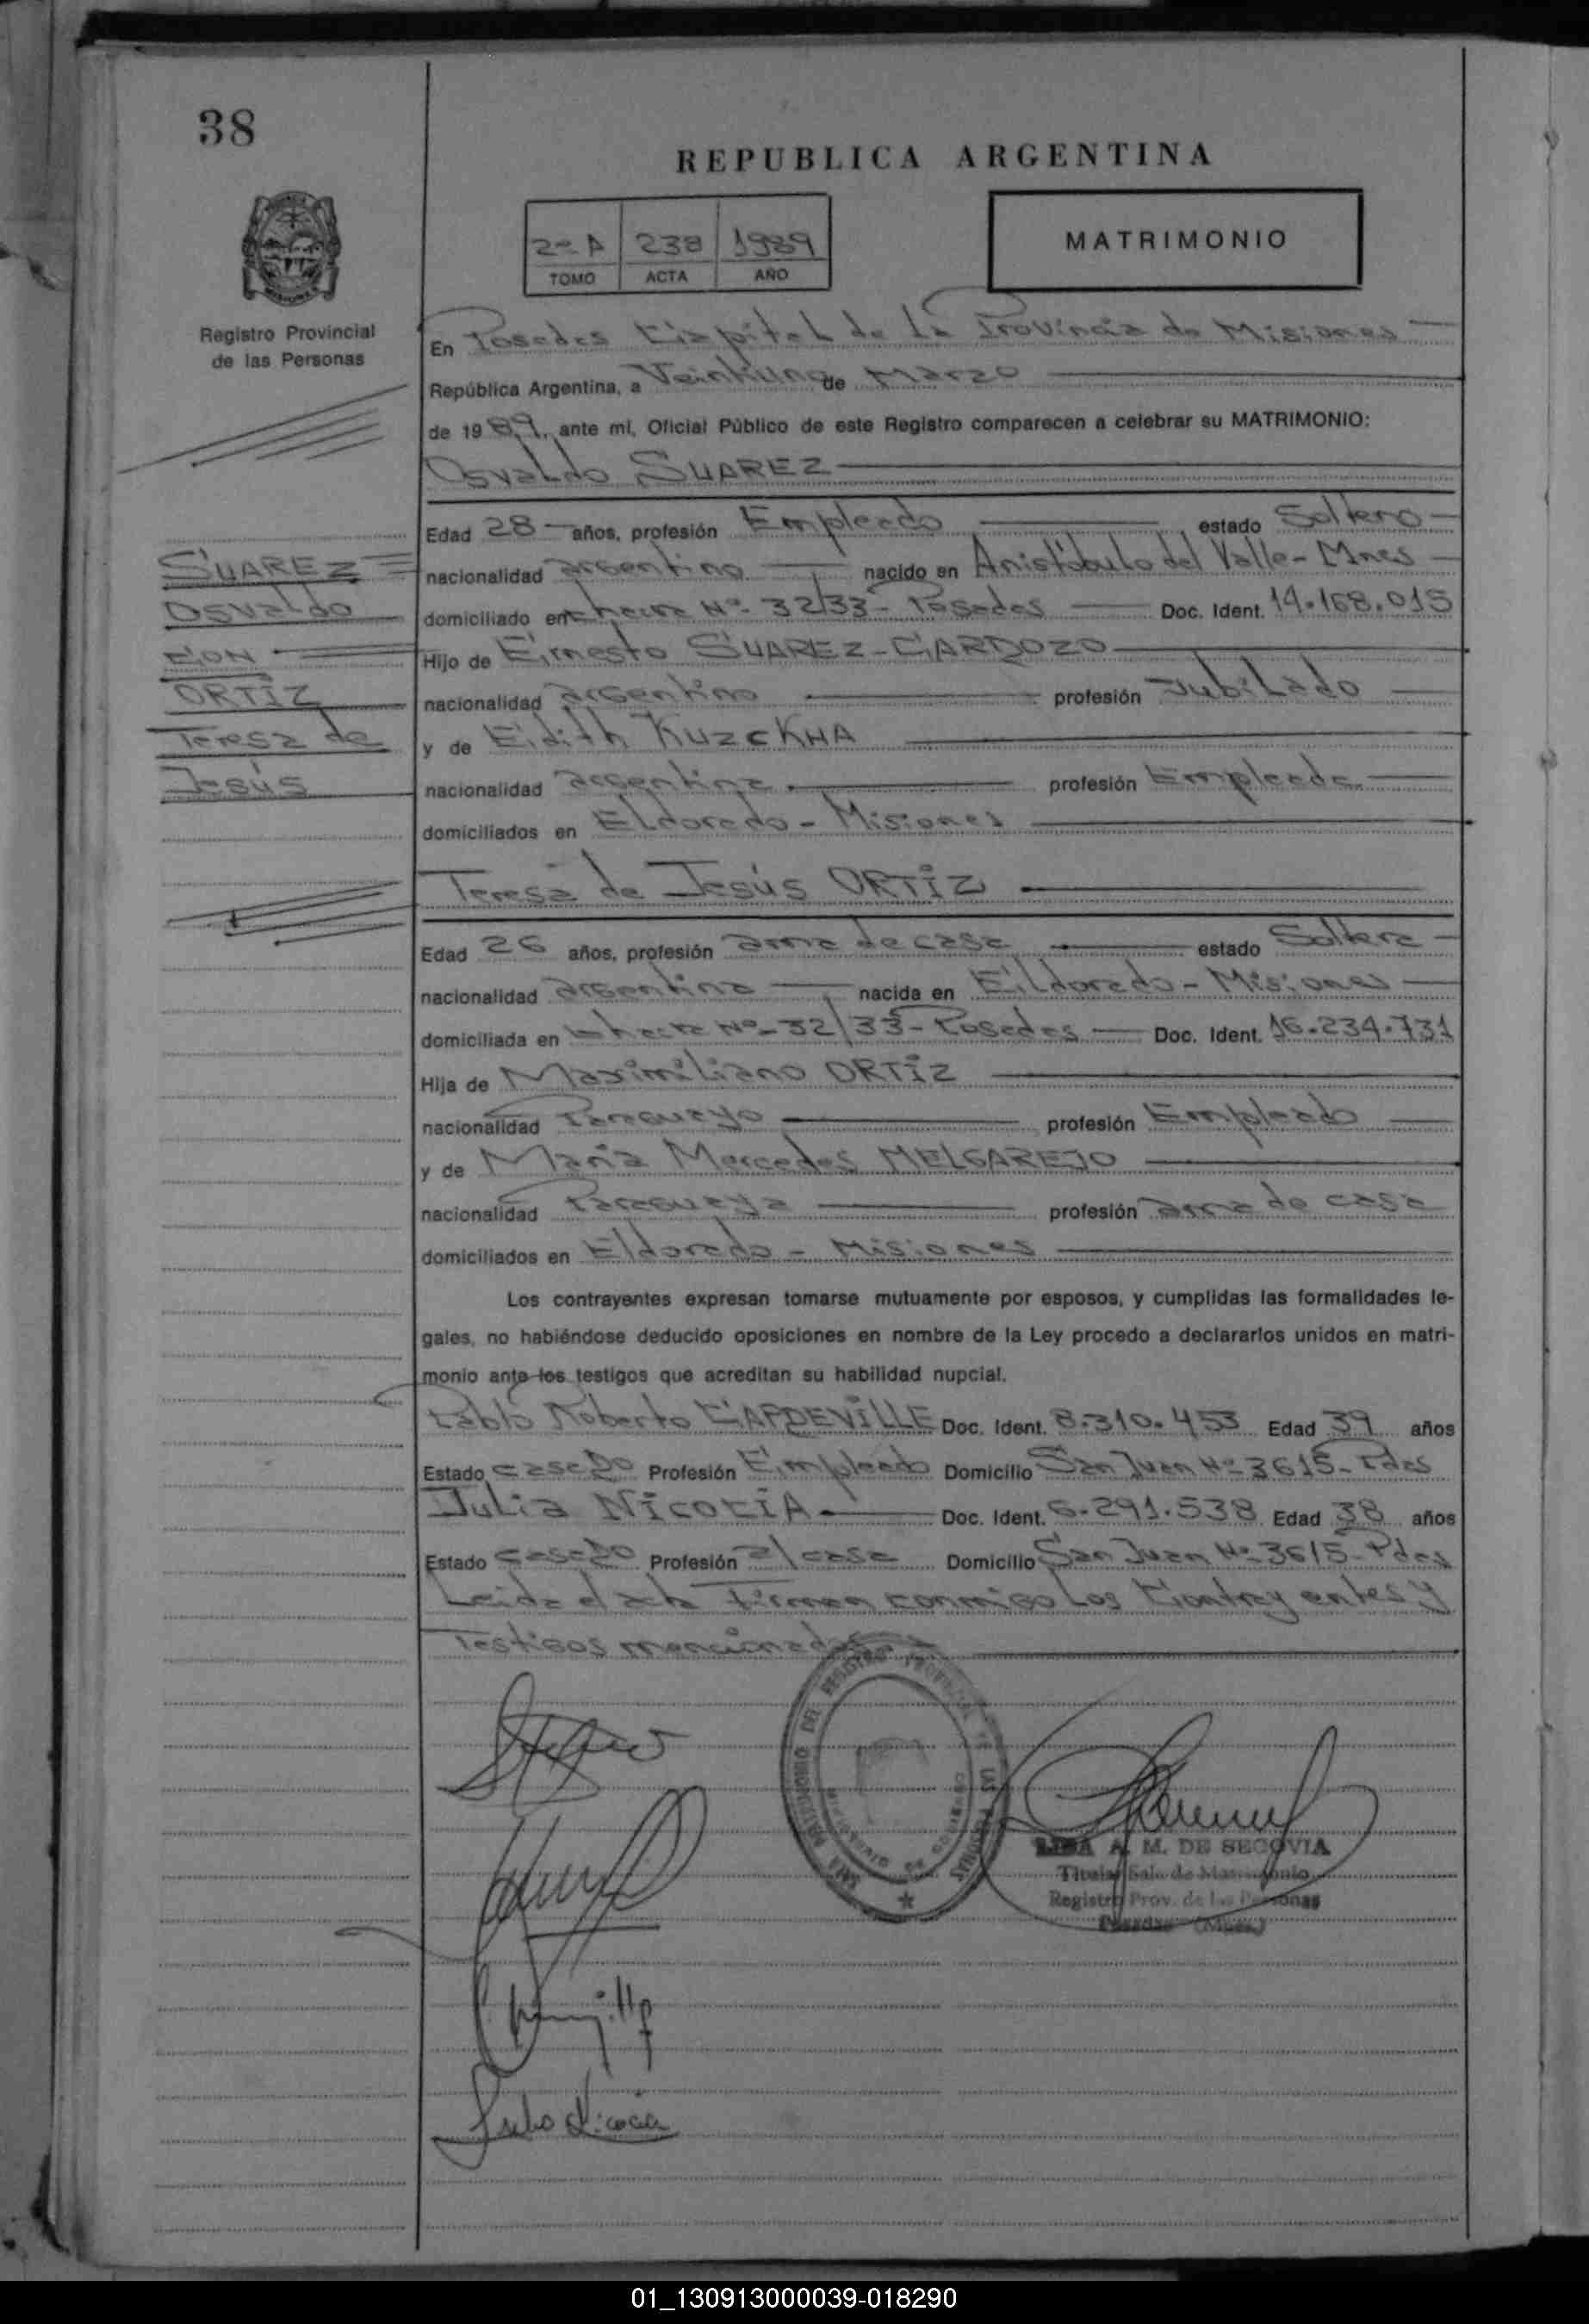 38
REPUBLICA ARGENTINA
2º A 238 1989
TOMO ACTA AÑO
MATRIMONIO
Registro Provincial
de las Personas
En Posadas Capital de la Provincia de Misiones
República Argentina, a Veintiuno de Marzo
de 1989, ante mí, Oficial Público de este Registro comparecen a celebrar su MATRIMONIO:
Osvaldo SUAREZ
Edad 28 años, profesión Empleado estado Soltero
nacionalidad argentino nacido en Aristóbulo del Valle - Mnes
domiciliado en chacra Nº 32/33 - Posadas Doc. Ident. 14.168.015
Hijo de Ernesto SUAREZ - CARDOZO
nacionalidad argentino profesión Jubilado
y de Edith KUZCKHA
nacionalidad argentina profesión Empleada
domiciliados en Eldorado - Misiones
SUAREZ
Osvaldo
CON
ORTIZ
Teresa de
Jesús
Teresa de Jesús ORTIZ
Edad 26 años, profesión ama de casa estado Soltera
nacionalidad argentina nacida en Eldorado - Misiones
domiciliada en chacra Nº 32/33 - Posadas Doc. Ident. 16.234.731
Hija de Maximiliano ORTIZ
nacionalidad Paraguayo profesión Empleado
y de María Mercedes MELGAREJO
nacionalidad Paraguaya profesión ama de casa
domiciliados en Eldorado - Misiones
Los contrayentes expresan tomarse mutuamente por esposos, y cumplidas las formalidades le-
gales, no habiéndose deducido oposiciones en nombre de la Ley procedo a declararlos unidos en matri-
monio ante los testigos que acreditan su habilidad nupcial.
Pablo Roberto CAPDEVILLE Doc. Ident. 8.310.453 Edad 39 años
Estado casado Profesión Empleado Domicilio San Juan Nº 3615 - Pdas
Julia NICOCIA Doc. Ident. 6.291.538 Edad 38 años
Estado casado Profesión a/casa Domicilio San Juan Nº 3615 - Pdas
Leida el acta Firman conmigo los Contrayentes y
Testigos mencionados
DEL REGISTRO PROVINCIAL DE LAS PERSONAS
A. M. DE SEGOVIA
Titular Sala de Matrimonio
Registro Prov. de las Personas
Posadas (Mnes.)
01_130913000039-018290